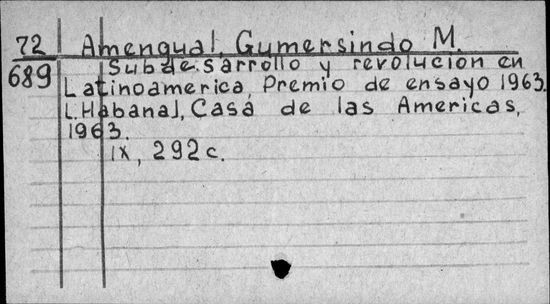 72 Amengual, Gumersindo M.
689 Subdesarrollo y revolucion en
Latinoamerica, Premio de ensayo 1963.
[Habana], Casa de las Americas,
1963.
IX, 292 c.